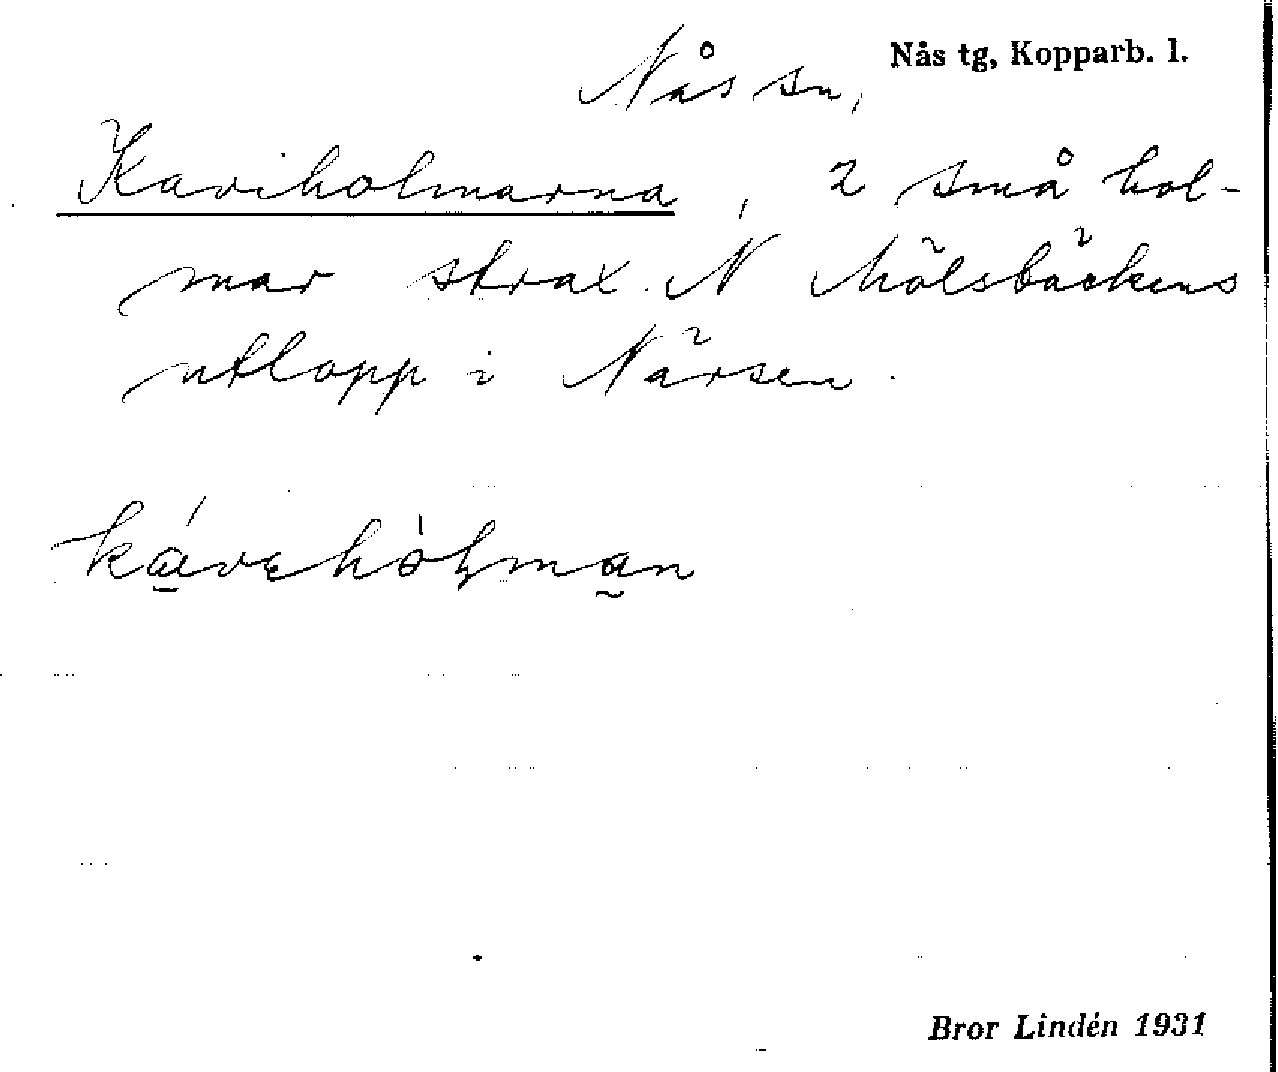 Nås tg, Kopparb. l.
Nås sn,
Kaviholmarna, 2 små hol-
mar strax N Mölsbäckens
utlopp i Närsen.
Bror Lindén 1931